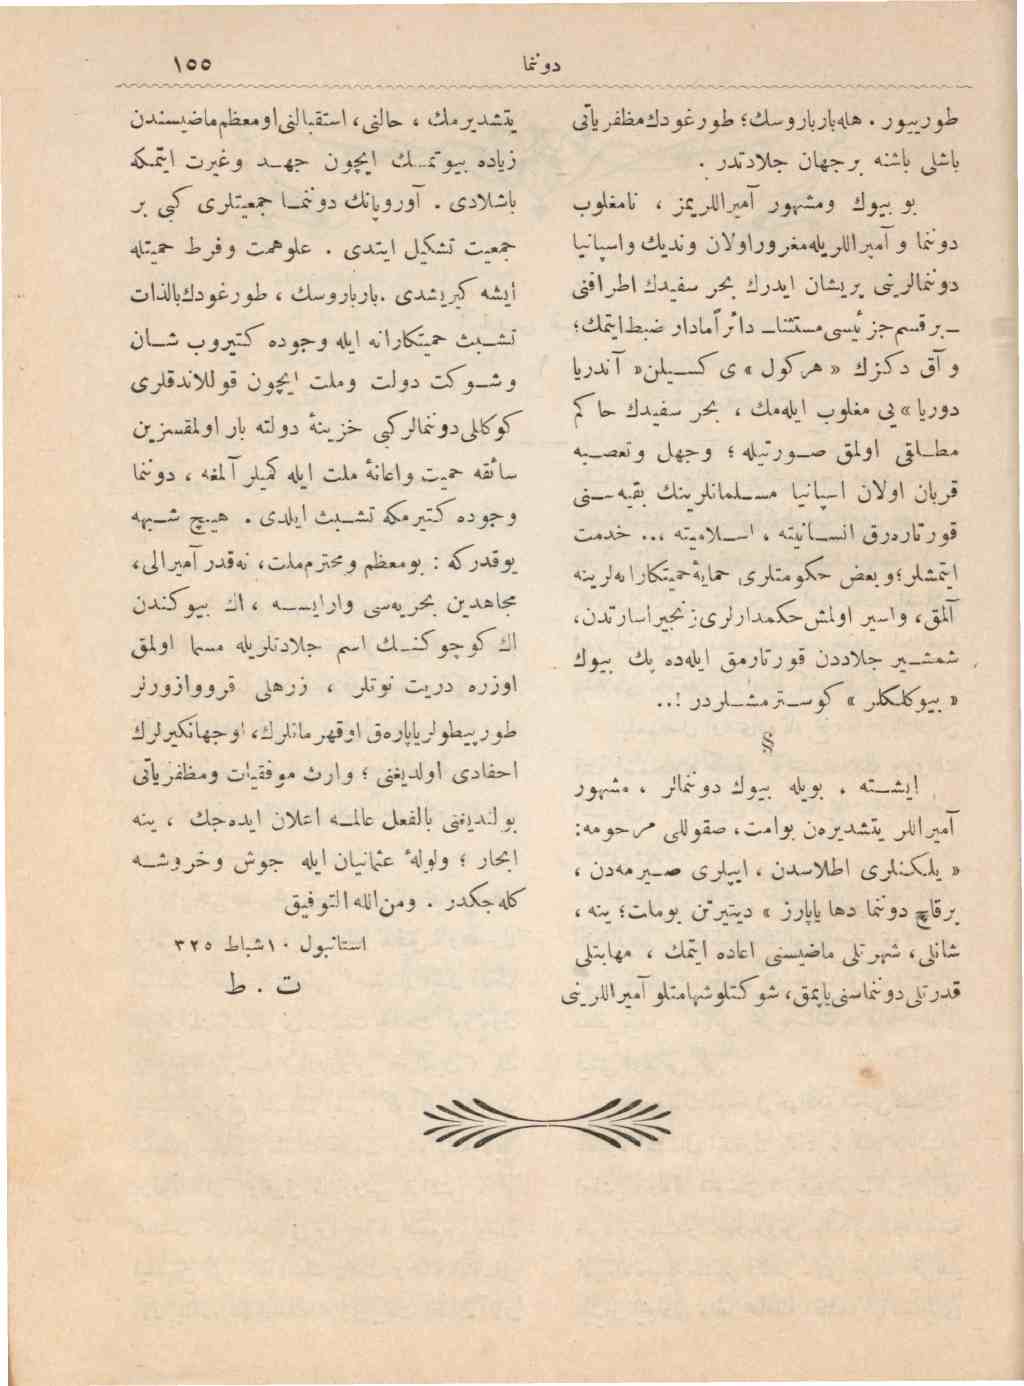 دوننما
١٥٥
طورييور. هله‌بارباروسك؛ طورغودك‌مظفرياتى
باشلى باشنه برجهان جلادتدر.
بو بيوك ومشهور آميراللريمز ، نامغلوب
دوننما و آميراللريله‌مغروراولان ونديك واسپانيا
دوننمالرينى پريشان ايدرك بحر سفيدك اطرافنى
ـ برقسم جزئيسى مستثنا ـ دائراًمادار ضبط‌ايتمك؛
و آق دكزك « هركول » ى كسيلن« آندريا
دوريا» يى مغلوب ايله‌مك ، بحر سفيدك حاكم
مطلقى اولمق صورتيله ؛ وجهل وتعصبه
قربان اولان اسپانيا مسلمانلرينك بقيه‌سنى
قورتاره‌رق انسانيته ، اسلاميته ... خدمت
ايتمشلر؛وبعض حكومتلرى حمايۀحميتكارانه‌لرينه
آلمق، واسير اولمش‌حكمدارلرى‌زنجيراسارتدن،
شمشير جلاددن قورتارمق ايله‌ده پك بيوك
« بيوكلكلر » كوسترمشلردر !..
§
ايشته ، بويله بيوك دوننمالر ، مشهور
آميراللر يتشديره‌ن بوامت، صقوللى مرحومه:
« يلكنلرى اطلاسدن ، ايپلرى صيرمه‌دن ،
برقاچ دوننما دها ياپارز » ديتيرتن بومات؛ ينه ،
شانلى، شهرتلى ماضيسنى اعاده ايتمك ، مهابتلى
قدرتلى دوننماسنى‌ياپمق، شوكتلوشهامتلو آميراللرينى
يتشديرمك ، حالنى، استقبالنى‌اومعظم‌ماضيسندن
زياده بيوتمك ايچون جهد وغيرت ايتمكه
باشلادى . آوروپانك دوننما جمعيتلرى كبى بر
جمعيت تشكيل ايتدى . علوهمت وفرط حميتله
ايشه كيريشدى .بارباروسك ، طورغودك‌بالذات
تشبث حميتكارانه ايله وجوده كتيروب شان
وشوكت دولت وملت ايچون قوللاندقلرى
كوكللى‌دوننمالركبى خزينۀ دولته بار اولمقسزين
سائقه حميت واعانۀ ملت ايله كميلر آلمغه ، دوننما
وجوده كتيرمكه تشبث ايلدى . هيچ شبهه
يوقدركه : بومعظم ومحترم‌ملت، نه‌قدر آميرالى،
مجاهدين بحريه‌سى وارايسه ، اك بيوكندن
اك كوچوكنك اسم جلادتلريله مسما اولمق
اوزره دريت نوتلر ، زرهلى قرووازورلر
طورپيطولرياپاره‌ق اوقهرمانلرك، اوجهانكيرلرك
احفادى اولديغنى ؛ وارث موفقيات ومظفرياتى
بولنديغنى بالفعل عالمه اعلان ايده‌جك ، ينه
ابحار ؛ ولولۀ عثمانيان ايله جوش وخروشه
كله‌جكدر . ومن‌الله التوفيق
استانبول ١٠شباط ٣٢٥
ت . ط